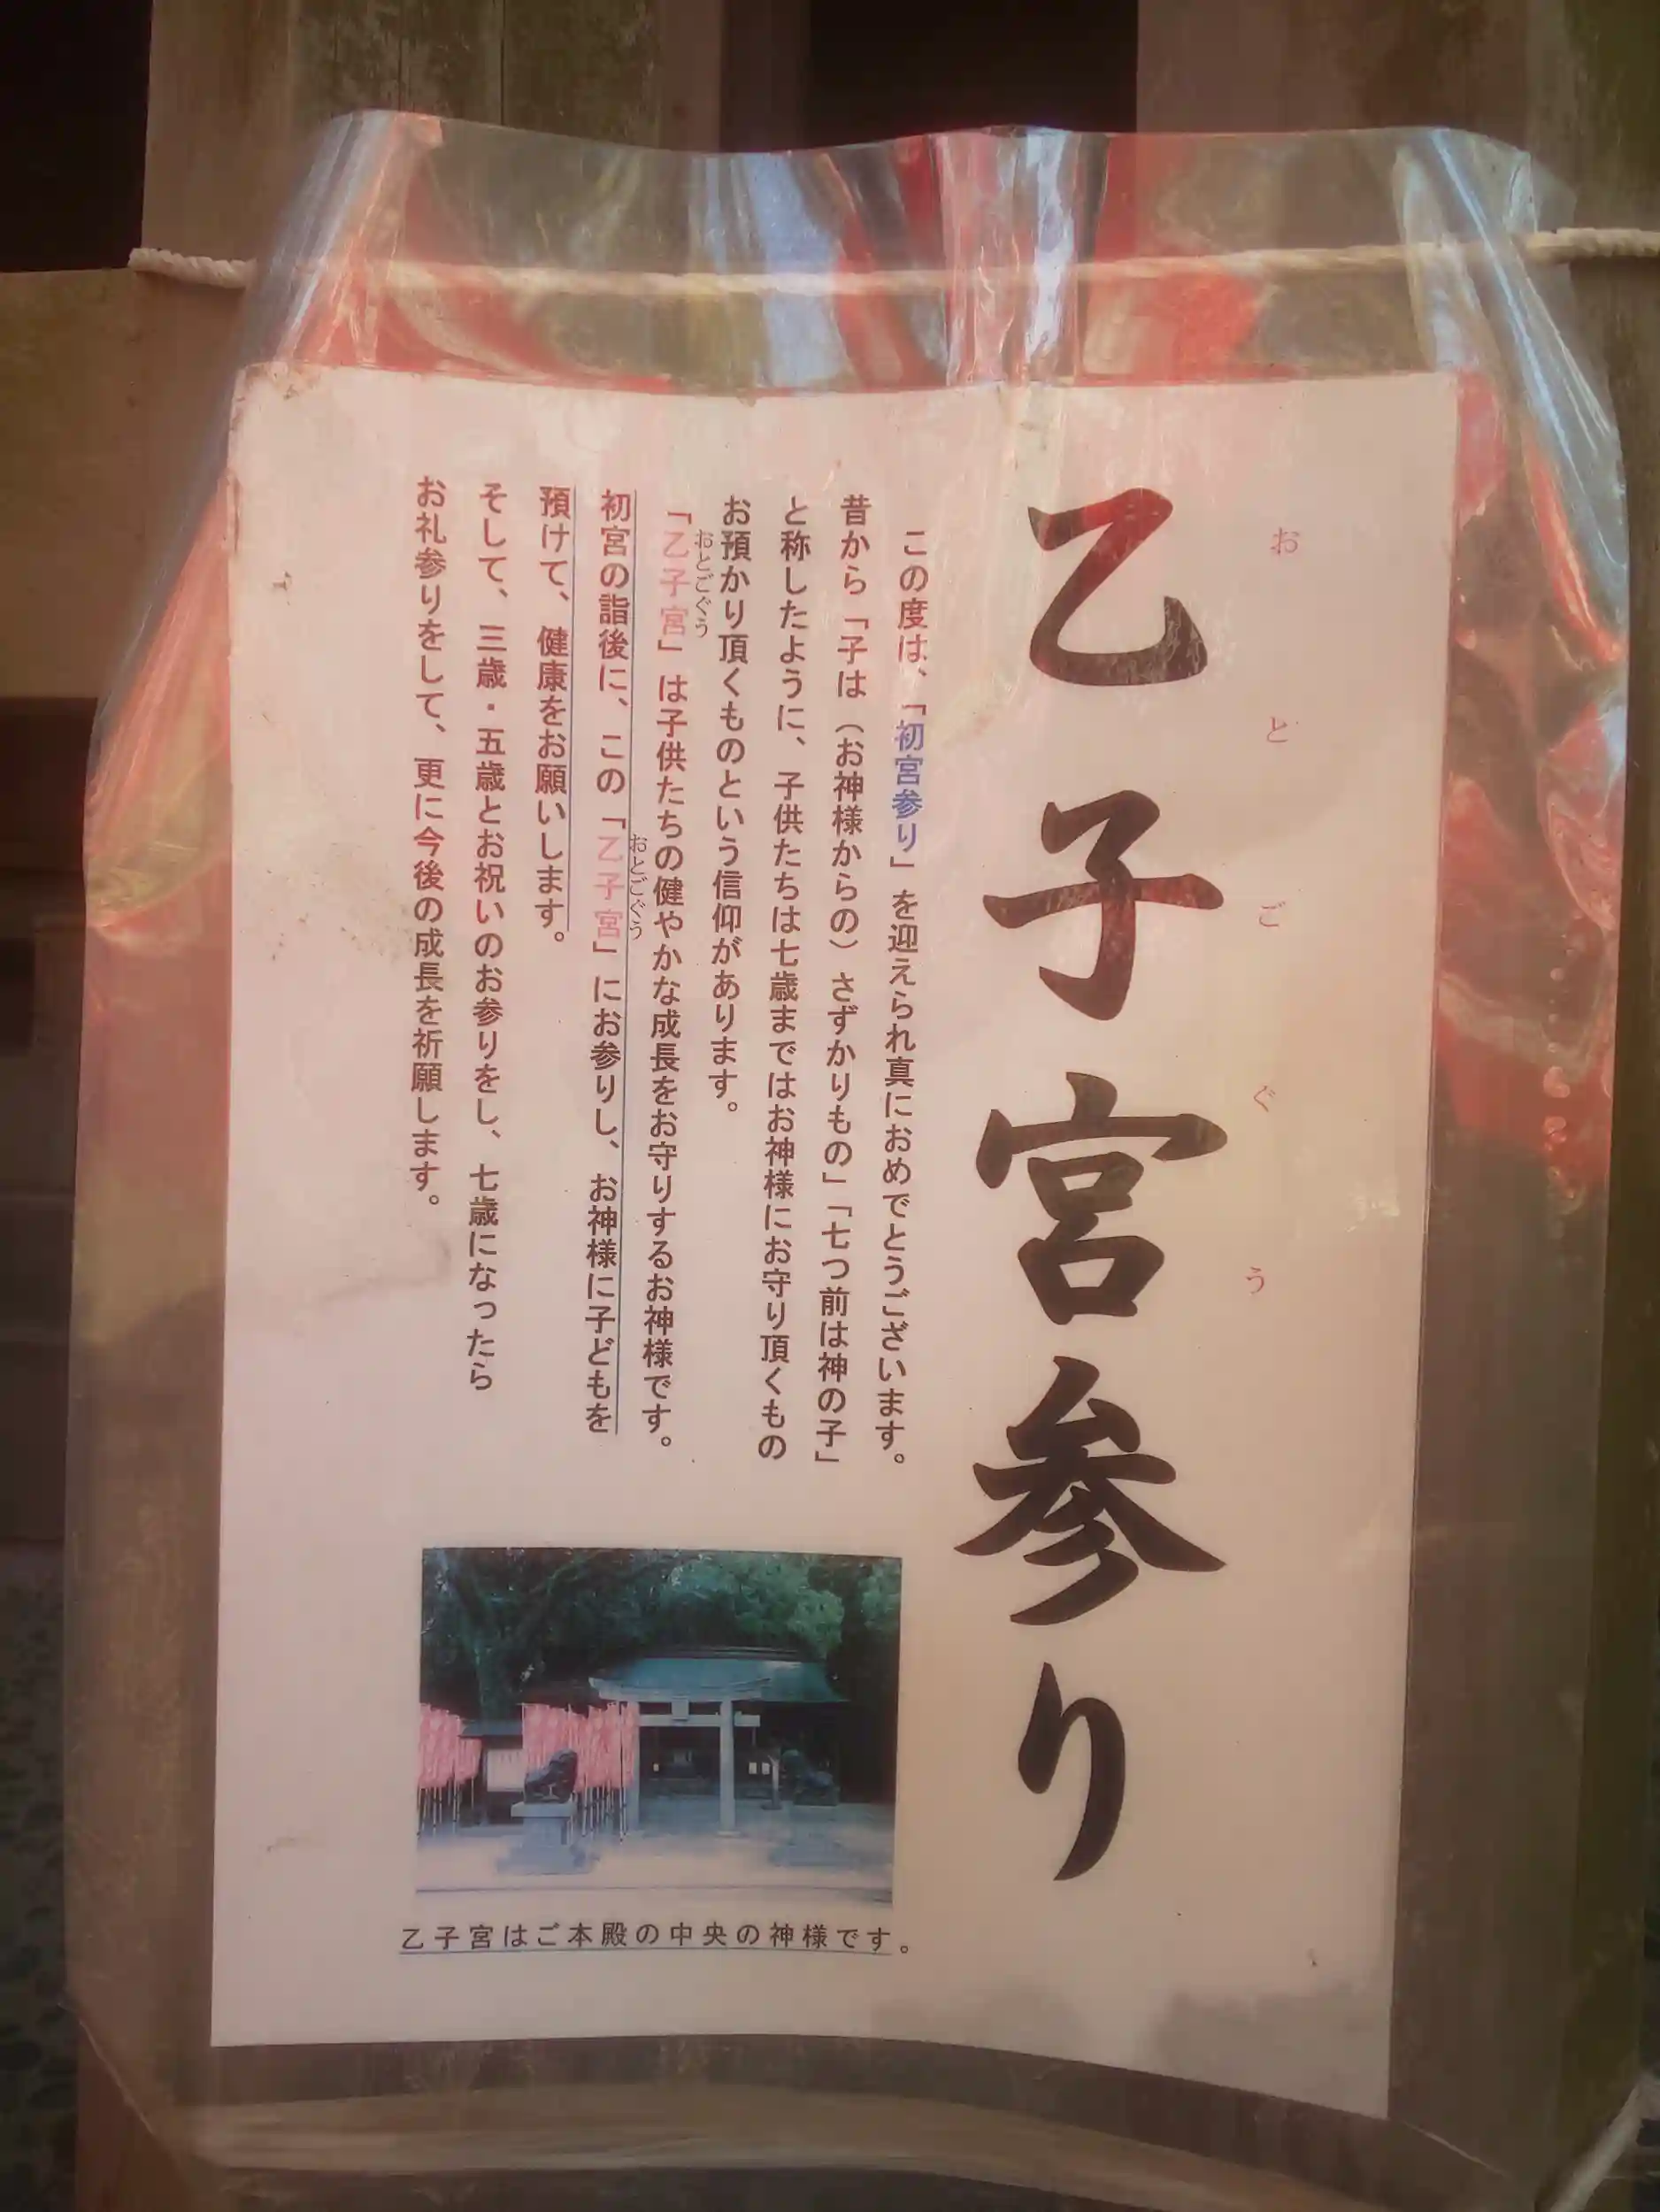 おとごぐう
乙子宮参り
この度は、「初宮参り」を迎えられ真におめでとうございます。
昔から「子は（お神様からの）さずかりもの」「七つ前は神の子」
と称したように、子供たちは七歳まではお神様にお守り頂くもの
お預かり頂くものという信仰があります。
おとごぐう
「乙子宮」は子供たちの健やかな成長をお守りするお神様です。
おとごぐう
初宮の詣後に、この「乙子宮」にお参りし、お神様に子どもを
預けて、健康をお願いします。
そして、三歳・五歳とお祝いのお参りをし、七歳になったら
お礼参りをして、更に今後の成長を祈願します。
乙子宮はご本殿の中央の神様です。